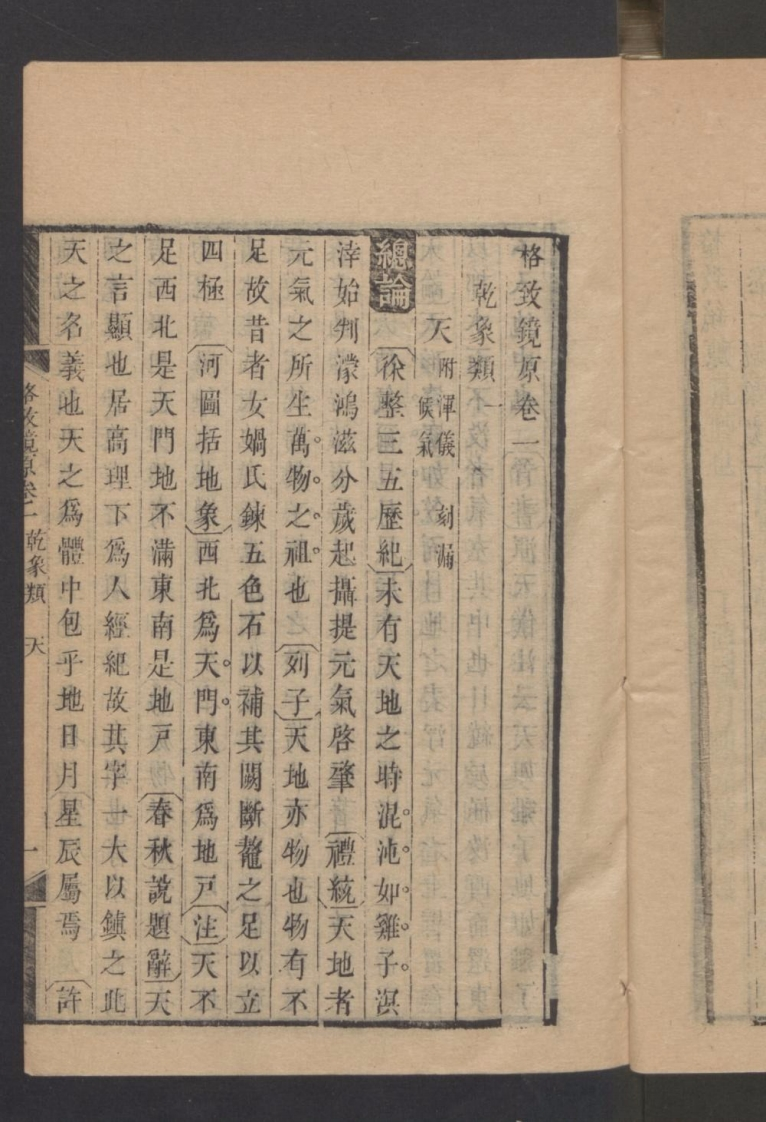 格致鏡原卷一
乾象類一
天 附渾儀 刻漏 候氣
總論 徐整三五歷紀未有天地之時混沌如雞子溟
涬始判濛鴻滋分歲起攝提元氣啓肇禮統天地者
元氣之所生萬物之祖也列子天地亦物也物有不
足故昔者女媧氏鍊五色石以補其闕斷鼇之足以立
四極河圖括地象西北爲天門東南爲地戸注天不
足西北是天門地不滿東南是地戸春秋說題辭天
之言顯也居高理下爲人經紀故其字一大以鎮之此
天之名義也天之爲體中包乎地日月星辰屬焉許
格致鏡原卷一 乾象類 天 一